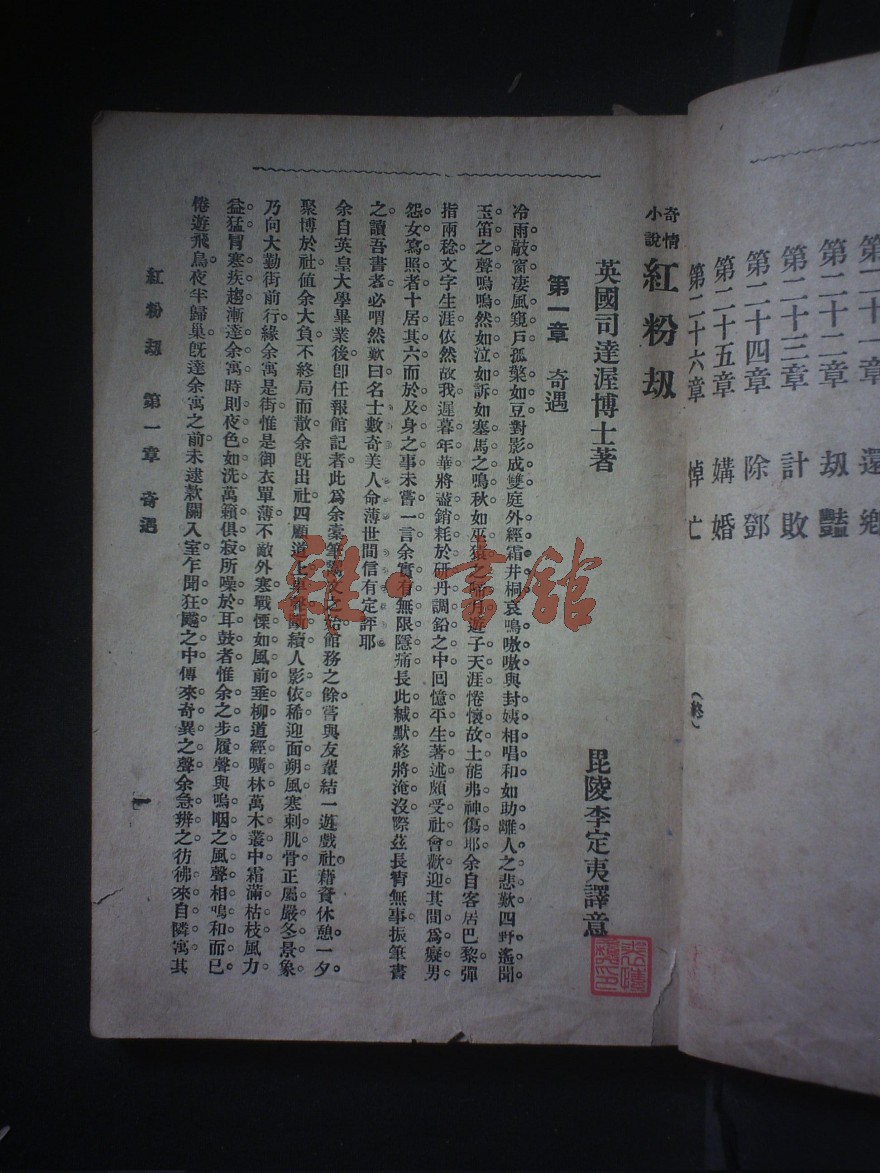 第二十一章 還鄉
第二十二章 劫豔
第二十三章 計敗
第二十四章 除鄧
第二十五章 媾婚
第二十六章 悼亡
（終）
奇情小說 紅粉刼
英國司達渥博士著
毘陵李定夷譯意
第一章 奇遇
冷雨敲窗。凄風窺戶。孤檠如豆。對影成雙。庭外經霜井桐。哀鳴嗷嗷。與封姨相唱和。如助離人之悲歎。四野遙聞
玉笛之聲。嗚嗚然如泣如訴。如塞馬之鳴秋。如巫猿之啼月。遊子天涯。惓懷故土。能弗神傷耶。余自客居巴黎。彈
指兩稔。文字生涯。依然故我。遲暮年華。將盡銷耗於研丹調鉛之中。回憶平生著述。頗受社會歡迎。其間爲癡男
怨女寫照者。十居其六。而於及身之事。未嘗一言。余實有無限隱痛。長此緘默。終將淹沒。際茲長宵無事。振筆書
之。讀吾書者。必喟然歎曰。名士數奇。美人命薄。世間信有定評耶。
余自英皇大學畢業後。卽任報館記者。此爲余橐筆鬻文之始。館務之餘。嘗與友輩結一遊戲社。藉資休憩。一夕
聚博於社。值余大負。不終局而散。余旣出社。四顧道上。車聲斷續。人影依稀。迎面朔風。寒刺肌骨。正屬嚴冬景象。
乃向大勤街前行。緣余寓是街。惟是御衣單薄。不敵外寒。戰慄如風前垂柳。道經曠林。萬木叢中。霜滿枯枝。風力
益猛。冒寒疾趨。漸達余寓。時則夜色如洗。萬籟俱寂。所噪於耳鼓者。惟余之步履聲。與嗚咽之風聲相鳴和而已。
倦遊飛鳥。夜半歸巢。旣達余寓之前。未逮款關入室。乍聞狂飈之中。傳來奇異之聲。余急辨之。彷彿來自隣寓。其
紅粉刼 第一章 奇遇
一
雜·書館